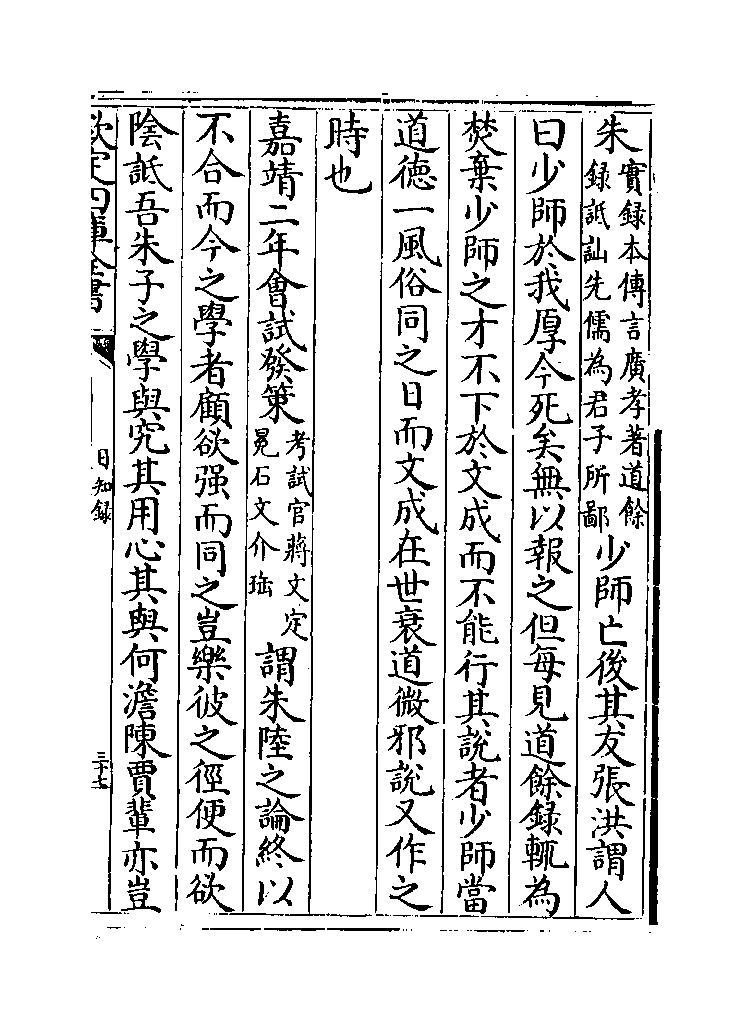 朱實録本傳言廣孝著道餘録詆訕先儒為君子所鄙少師亡後其友張洪謂人
曰少師於我厚今死矣無以報之但每見道餘録輒為
焚棄少師之才不下於文成而不能行其說者少師當
道德一風俗同之日而文成在世衰道微邪說又作之
時也
嘉靖二年會試發策考試官蔣文定冕石文介珤謂朱陸之論終以
不合而今之學者顧欲强而同之豈樂彼之徑便而欲
陰詆吾朱子之學與究其用心其與何澹陳賈輩亦豈
欽定四庫全書
日知録
三十七